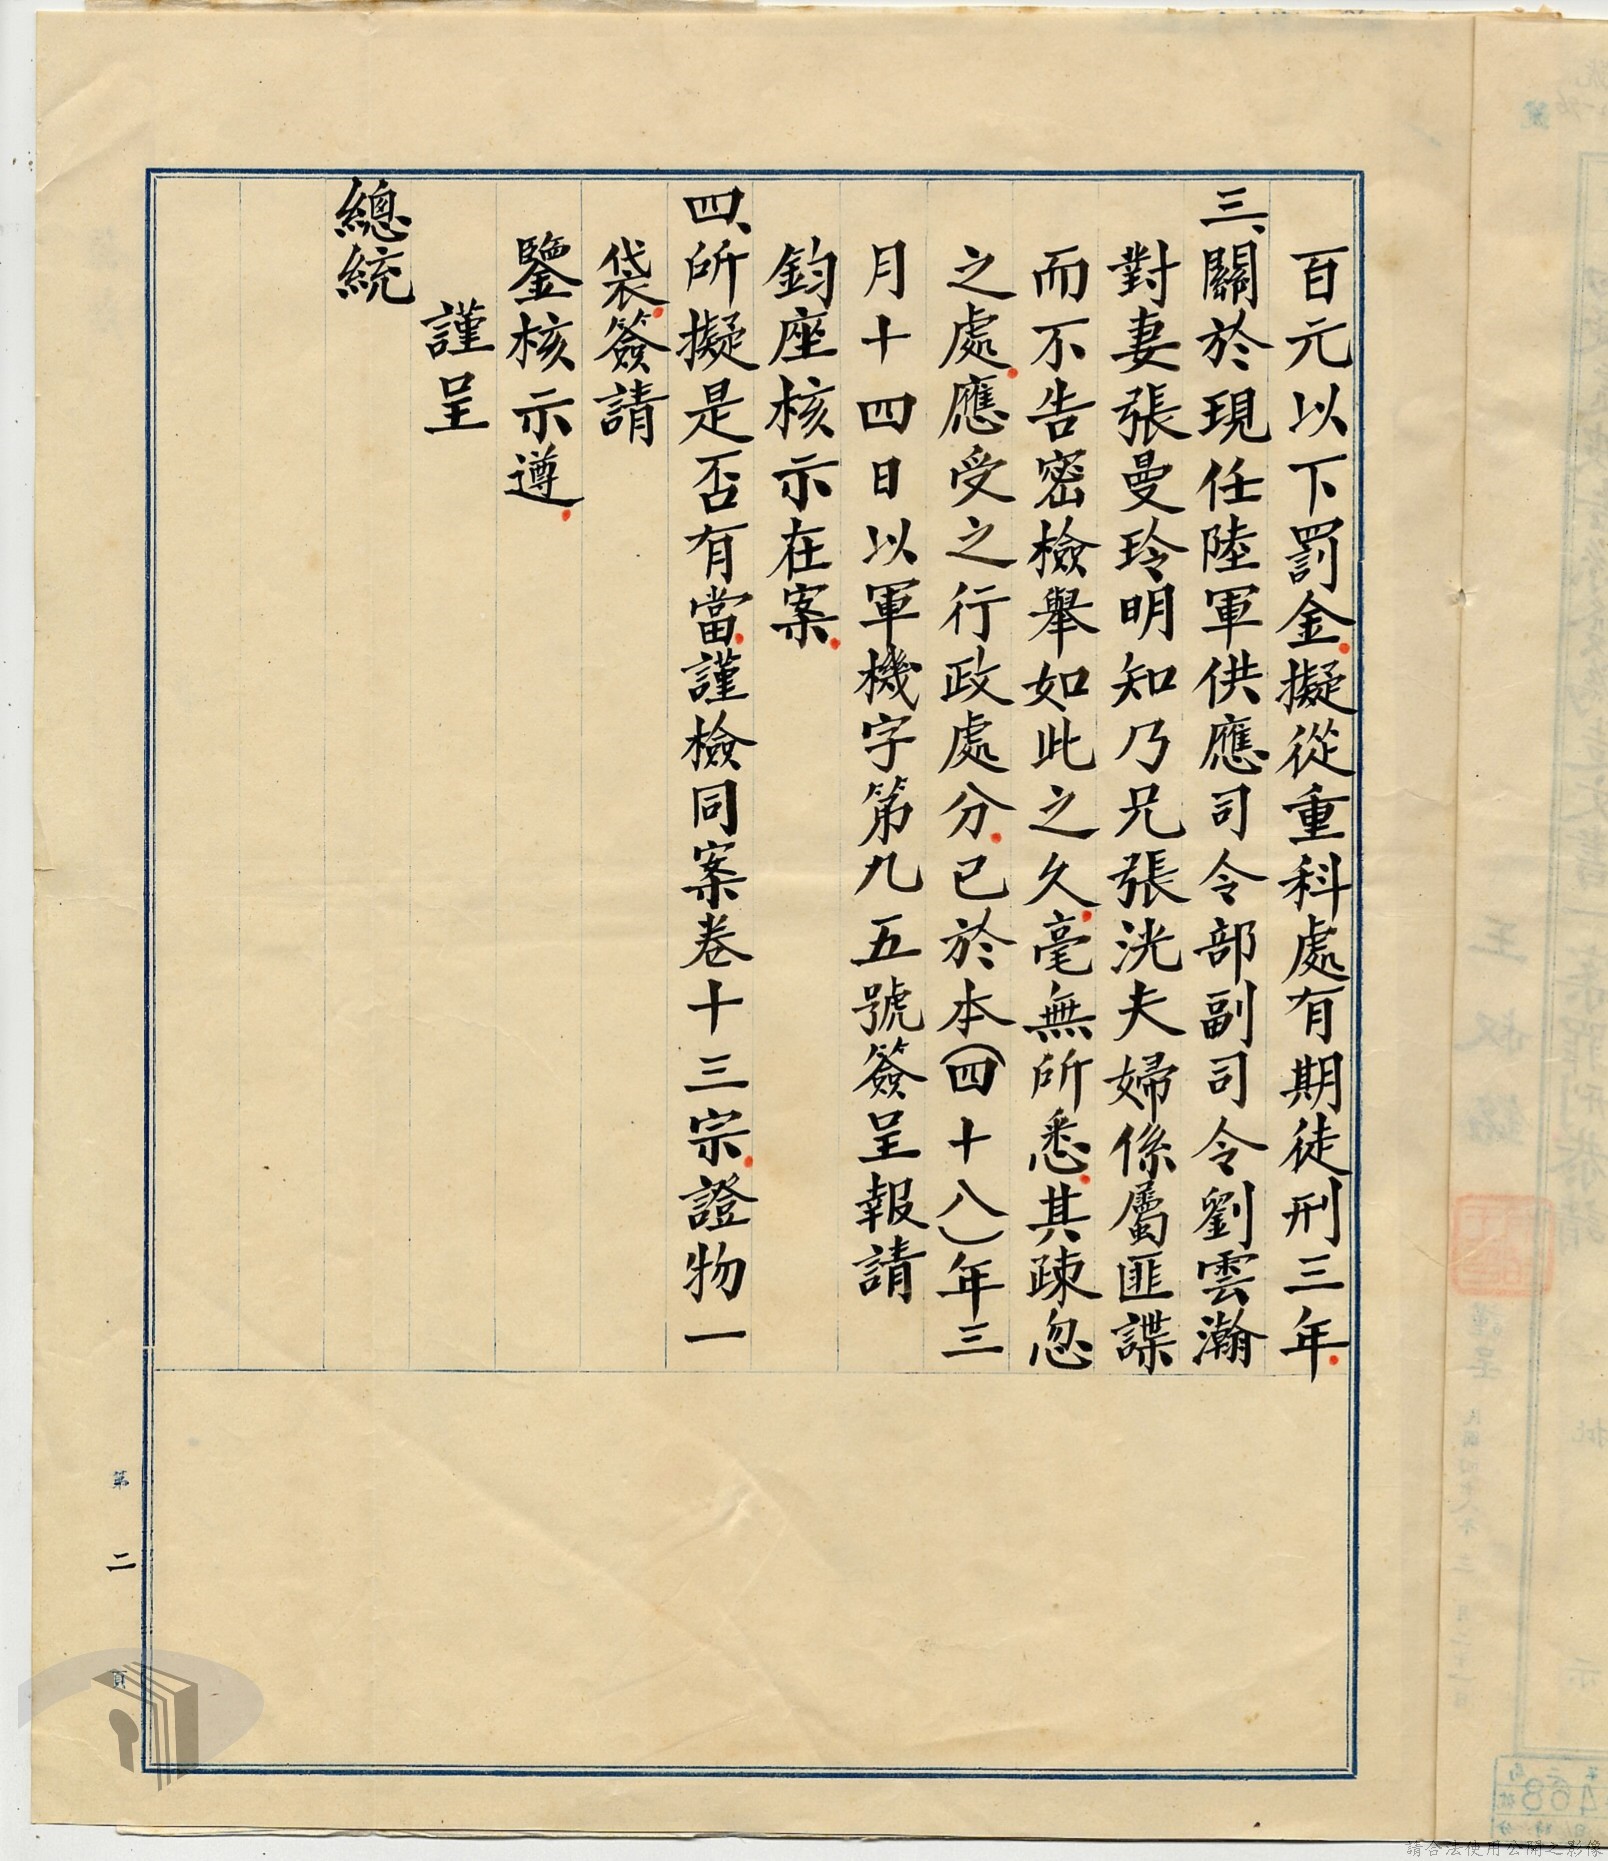 百元以下罰金擬從重科處有期徒刑三年
三、關於現任陸軍供應司令部副司令劉雲瀚
對妻張曼玲明知乃兄張洸夫婦係屬匪諜
而不告密檢舉如此之久毫無所悉其疎忽
之處應受之行政處分已於本(四十八)年三
月十四日以軍機字第九五號簽呈報請
鈞座核示在案
四、所擬是否有當謹檢同案卷十三宗證物一
袋簽請
鑒核示遵
謹呈
總統
第二頁
請合法使用公開之影像